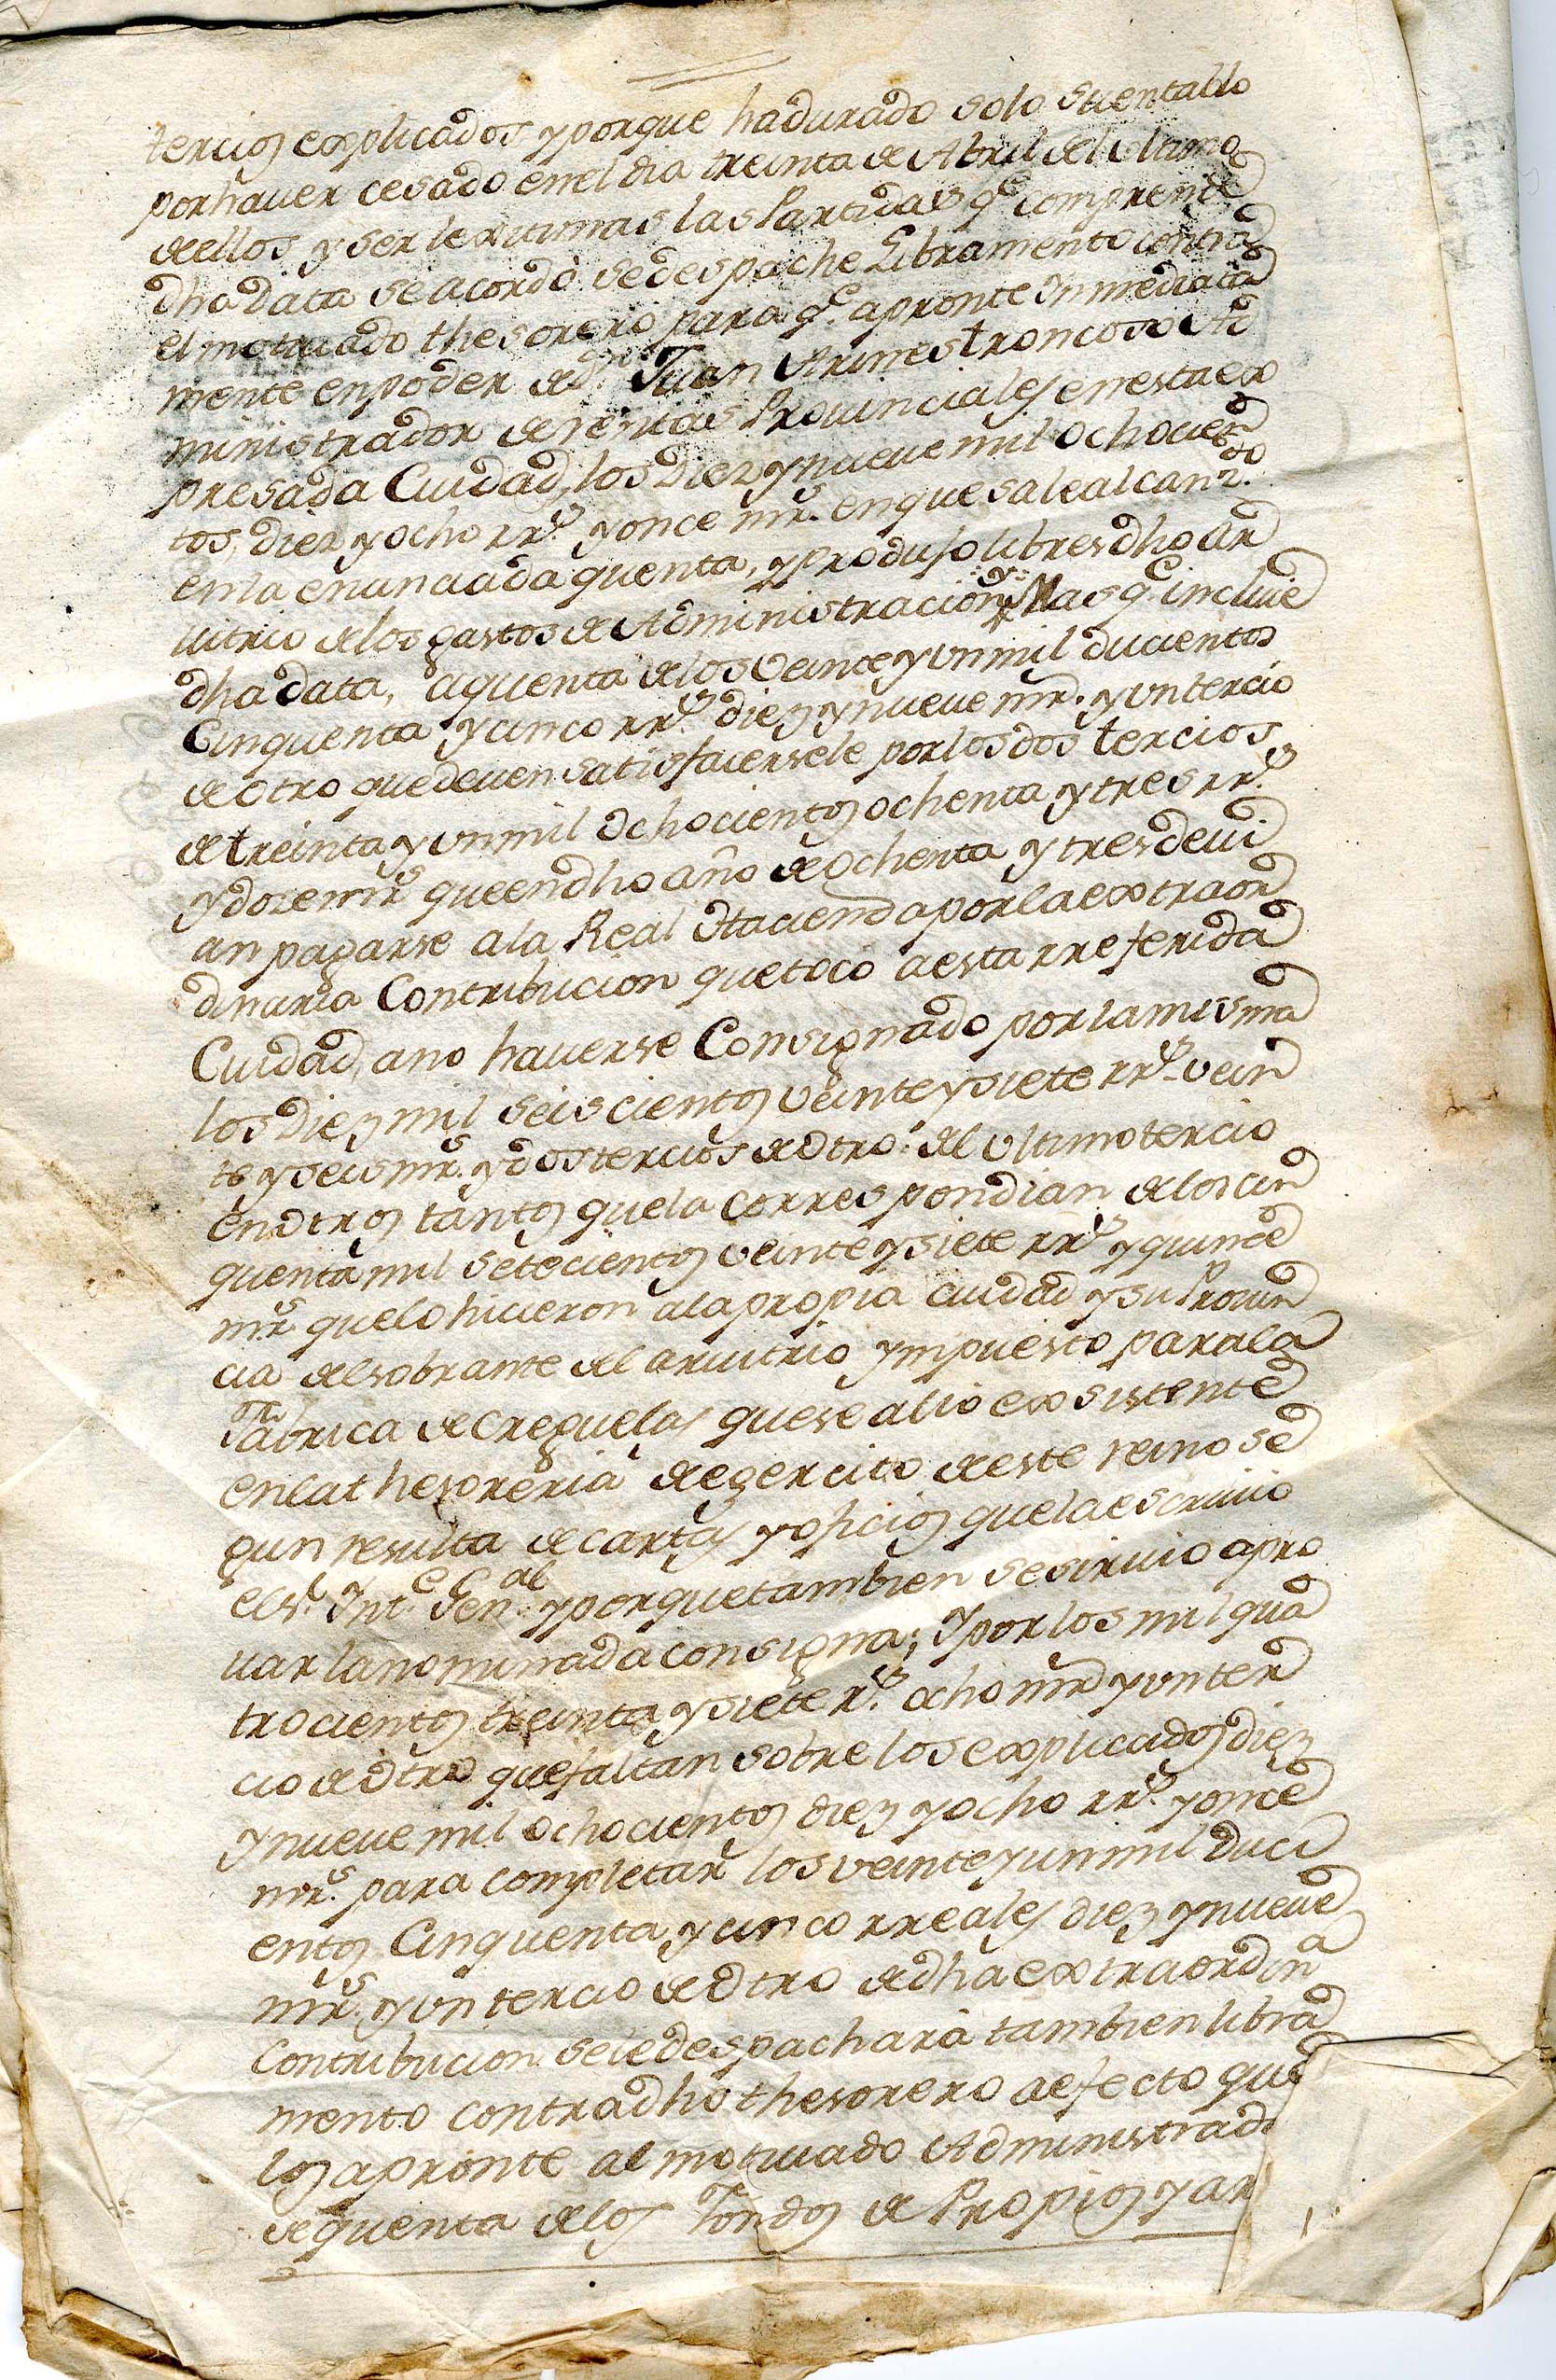 tercios explicados y porque ha durado solo su entablo
por haver cesado en el dia treinta de Abril del ultimo
de ellos y ser lexitimas las Partidas q.e comprende
dha Data se acordó se despache Libramento contra
el motivado thesorero para q.e apronte Inmediata
mente en poder de d.n Juan Arines troncoso Ad
ministrador de rentas Provinciales en esta ex
presada Ciudad, los diez y nueve mil ochocien
tos, diez y ocho rr.s y once mr.s en que sale alcanz.do
en la enunciada quenta, y produjo libres dho ar
vitrio de los gastos de Administracion y Mas q.e incluie
dha data, a quenta de los veinte y un mil ducientos
Cinquenta y cinco rr.s diez y nueve mrs. y un tercio
de otro que deven satisfacersele por los dos tercios
de treinta y un mil ochocientos ochenta y tres rr.s
y doze mrs que en dho año de ochenta y tres devi
an pagarse a la Real Hacienda por la extraor
dinaria Contribucion que tocó a esta rreferida
Ciudad, a no haverse Consignado por la misma
los diez mil seiscientos veinte y siete rr.s vein
te y seis mrs. y dos tercios de otro del ultimo tercio
en otros tantos que la correspondian de los cin
quenta mil setecientos veinte y siete rr.s y quince
mrs que lo hicieron a la propia ciudad y su Provin
cia del sobrante del arvitrio ympuesto para la
fabrica de Creguelas que se alló exsistente
en la thesoreria de egercito de este reino se
gun resulta de cartas y oficios que la escrivio
el s.r Int.e Gen.al y porque tambien se sirvio apro
var la nominada consigna; Y por los mil qua
trocientos treinta y siete r.s ocho mrs y un ter
cio de otro que faltan sobre los explicados diez
y nueve mil ochocientos diez y ocho rr.s y once
mrs. para completar los veinte y un mil duci
entos Cinquenta y cinco rreales diez y nueve
mrs. y un tercio de otro de dha extraordin.a
Contribucion se le despachará tambien libra
mento contra dho thesorero a efecto que
los apronte al motivado Administrado
de quenta de los Fondos de Propios y ar